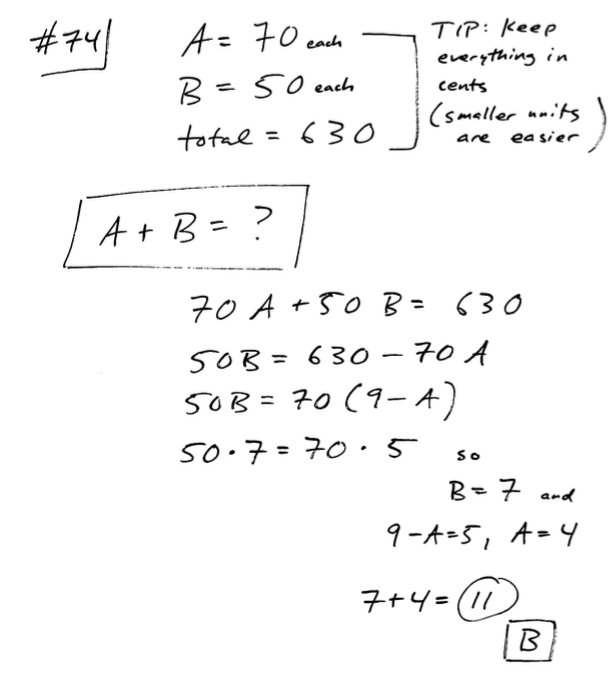 #74
A = 70 each
B = 50 each
total = 630
TIP: Keep
everything in
cents
(smaller units
are easier)
A + B = ?
70 A + 50 B = 630
50B = 630 - 70 A
50B = 70 (9 - A)
50 · 7 = 70 · 5 so
B = 7 and
9 - A = 5, A = 4
7 + 4 = 11
B